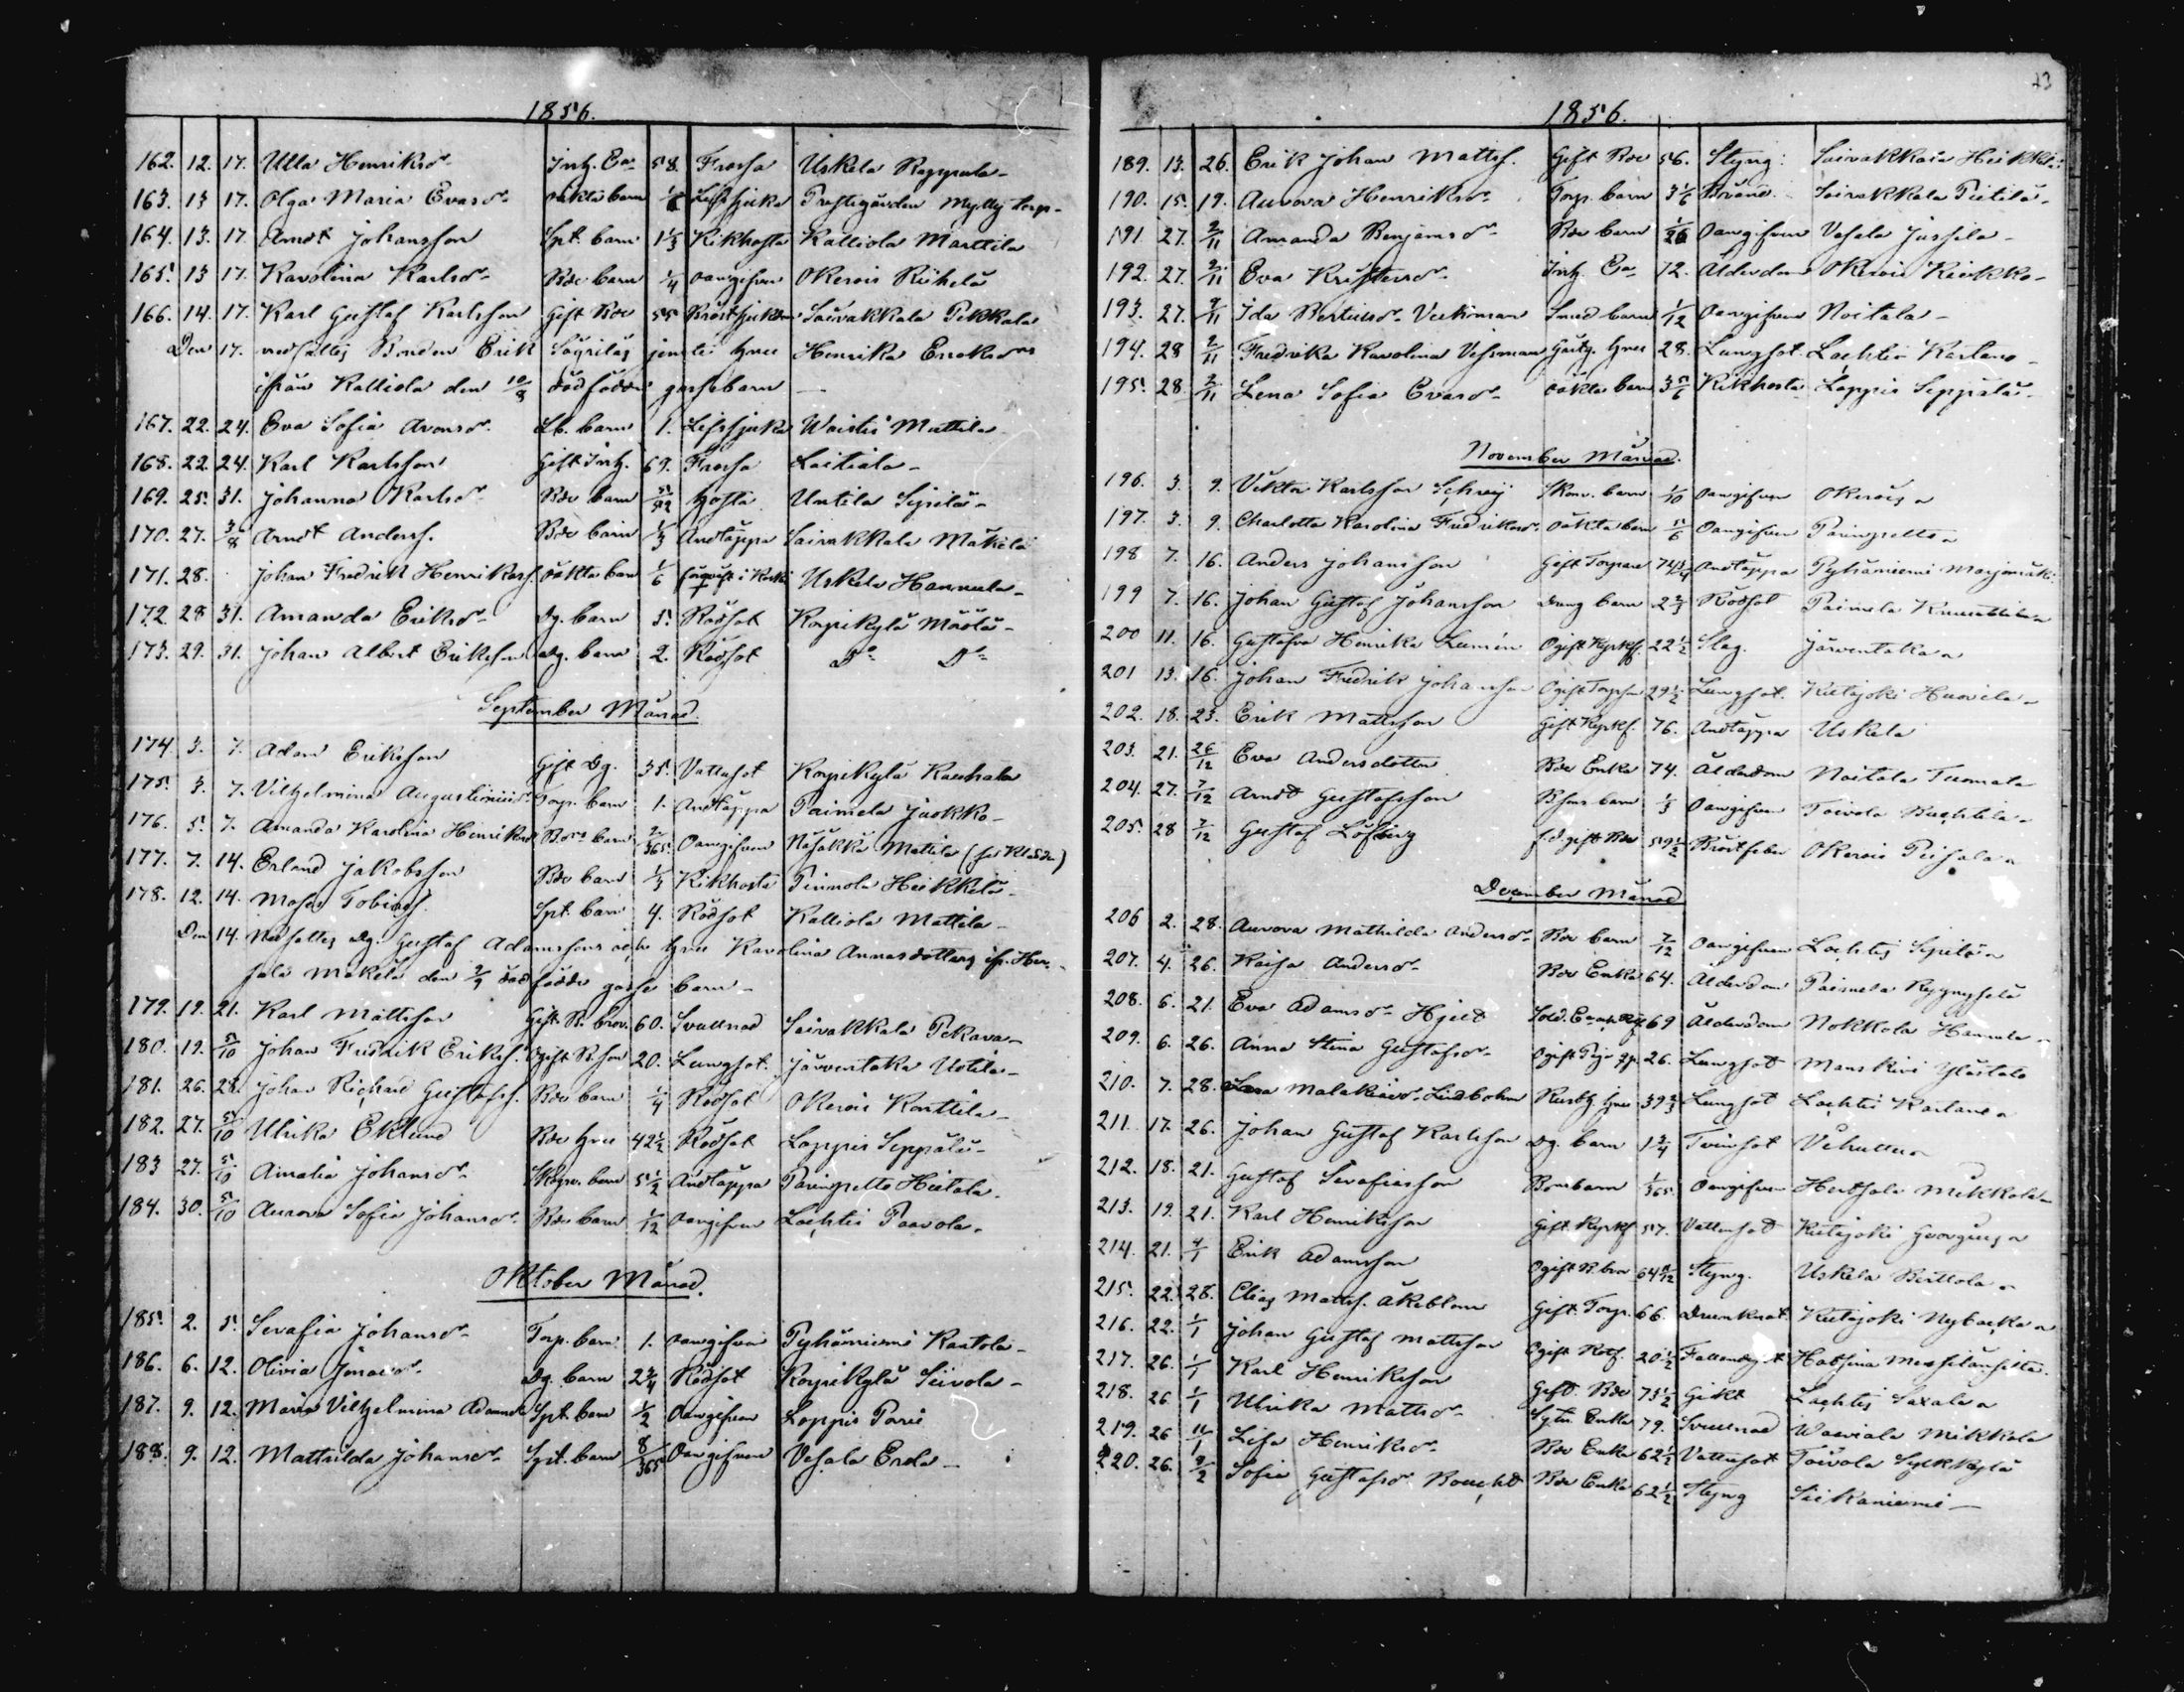 1856.
162. 12. 17. Ulla Henriksdr Inh. Ea 58. Frossa Uskela Reppala
163. 13 17. Olga Maria Evasdr oäkta barn Lefssjuka Prestegården Mylly torp
164. 13. 17 Arndt Johansson Spt. barn 1 1/3 Kikhosta Kalliola Marttila
165. 13 17. Karolina Karlsdr Bde barn 1/4 oangifven Okerois Riihelä
166. 14. 17. Karl Gustaf Karlsson Gift Bde 55 Bröstsjukdom Sairakkala Pekkala
Den 17. nedsattes Bonden Erik jemte hru Henrika Ericsdrs
ifrån Kalliola den 10/8 dödfödde gossebarn
167. 22. 24. Eva Sofia Aronsdr Lb. barn 1. Lefssjuka Waistis Mattila
168. 22. 24. Karl Karlsson Gift Inh. 69. Frossa Laitiala
169. 25. 31. Johanna Karlsdr Bde barn 5/12 Hosta Untila Sipilä
170. 27. 3/8 Arndt Anderss. Bde barn 1/3 Andtäppa Sairakkala Mäkelä
171. 28. Johan Fredrik Henrikss. oäkta barn 1/6 Uskela Hannula
172. 28 31. Amanda Eriksdr Dg. barn 5. Rödsot Korpikylä Mäölä
173. 29. 31. Johan Albert Eriksson Dg. barn 2. Rödsot Do Do
September Månad.
174 3. 7. Adam Eriksson Gift Dg. 35. Vattusot Korpikylä Kauhala
175. 3. 7. Vilhelmina Augustinidr Torp. barn 1. Andtäppa Paimela Jaakko
176. 5. 7. Amanda Karolina Henriksdr Bde barn 2/365 Oangifven Näsäkkä Mattila
177. 7. 14. Erland Jakobsson Bde barn 1/3 Kikhosta Pinnola Heikkilä
178. 12. 14. Moses Tobiass. Spt. barn 4. Rödsot Kalliola Mattila
Den 14. Nedsattes Dg. Gustaf Adamssons och hru Karolina Annasdotters ifr. Her-
sala Mäkelä den 2/9 dödfödde gosse barn
179. 19. 21. Karl Mattsson Gift B. bror. 60. Svullnad Sairakkala Pekava
180. 19. 5/10 Johan Fredrik Erikss. Ogift B. son 20. Lungsot. Järventaka Uotila
181. 26. 28. Johan Richard Gustafss. Bde barn 1/4 Rödsot Okerois Konttila
182. 27. 5/10 Ulrika Eklund Bde hru 42 1/2 Rödsot Lappis Seppälä
183 27. 5/10 Amalia Johansdr barn 5 1/2 Andtäppa Paingretto Hietala.
184. 30. 5/10 Aurora Sofia Johansdr Bde barn 1/12 oangifven Lachtis Paavola.
Oktober Månad.
185. 2. 5. Serafia Johansdr Torp. barn 1. oangifven Pyhäniemi Kartola
186. 6. 12. Olivia Jonasdr Dg. barn 2 3/4 Rödsot Korpikylä Seivola
187. 9. 12. Maria Vilhelmina Adamsdr Spt. barn 1/2 Oangifven Lappis Parri
188. 9. 12. Mathilda Johansdr Spt. barn 8/365 Oangifven Vesala Erola
23
1856.
189. 13. 26. Erik Johan Mattss. Gift Bde 56. Styng: Sairakkala Heikkilä
190. 15. 19. Aurora Henriksdr Torp. barn 3 1/6 Sairakkala Pietilä
191 27. 2/11 Amanda Benjamsdr Bde barn 1/26 Oangifven Vesala Jussila
192. 27. 2/11 Eva Kristersdr Inh. Ea 72. Ålderdom Okerois Kiekko
193. 27. 9/11 Ida Bertilsdr Smed barn 1/12 Oangifven Noitala
194. 28 2/11 Fredrika Karolina Vehsman hru 28. Lungsot. Lachtis Karlano
195. 28. 2/11 Lena Sofia Evasdr oäkta barn 3 5/6 Kikhosta Lappis Seppälä
November Månad.
196. 3. 9. Viktor Karlsson barn 1/10 Oangifven Okerois
197. 3. 9. Charlotta Karolina Fredriksdr Oäkta barn 5/6 Oangifven Paingretto
198 7. 16. Anders Johansson Gift Torpare 74 Andtäppa Pyhäniemi Marjomäki
199 7. 16. Johan Gustaf Johansson Dräng barn 2 2/3 Rödsot Paimela
200 11. 16. Gustafva Henrika Lumén Ogift 22 1/2 Slag. Järventaka
201 13. 16. Johan Fredrik Johansson Ogift Torpson 29 1/2 Lungsot. Kutajoki Huovila
202. 18. 23. Erik Mattsson Gift 76. Andtäppa Uskela
203. 21. 26/12 Eva Andersdotter Bde Enka 74. Ålderdom Noitala Tuomala
204. 27. 7/12 Arndt Gustafsson barn 1/3 Oangifven Toivola
205. 28 7/12 Gustaf Löfberg f.d. gift Bde 59 1/2 Bröstfeber Okerois
December Månad
206 2. 28. Aurora Mathilda Andersdr Bde barn 7/12 Oangifven Lachtis Sipilä
207. 4. 26. Kaisa Andersdr Bde Enka 64. Ålderdom Paimela
208. 6. 21. Eva Adamsdr Hjelt Sold. Enka 69 Ålderdom Nokkola Hannula
209. 6. 26. Anna Stina Gustafsdr Ogift 26. Lungsot Manskivi Ylästalo
210. 7. 28. Sara Malakiasdr Lindbohm Rusth. hru 39 2/3 Lungsot Lachtis Karlano
211. 17. 26. Johan Gustaf Karlsson Dg. barn 1 3/4 Tvinsot
212. 18. 21. Gustaf Serafiasson Bde barn 1/365 Oangifven Hertsala Mikkola
213. 19. 21. Karl Henriksson Gift 57. Vattusot Kutajoki
214. 21. 4/1 Erik Adamsson Ogift B. bror 64 Styng. Uskela Perttola
215. 22. 28. Elias Mattss. Åkeblom Gift Torp. 66. Drunknat Kutajoki Nybacka
216. 22. 1/1 Johan Gustaf Mattsson Ogift 20 1/2 Hatsina
217. 26. 1/1 Karl Henriksson Gift Bde 73 1/2 Gikt Lachtis Saxala
218. 26 1/1 Ulrika Mattsdr Enka 79. Svullnad Mikkola
219. 26 11/1 Lisa Henriksdr Bde Enka 62 1/2 Vattusot Toivola
220. 26. 9/2 Sofia Gustafsdr Bde Enka 62 1/2 Styng Siikaniemi